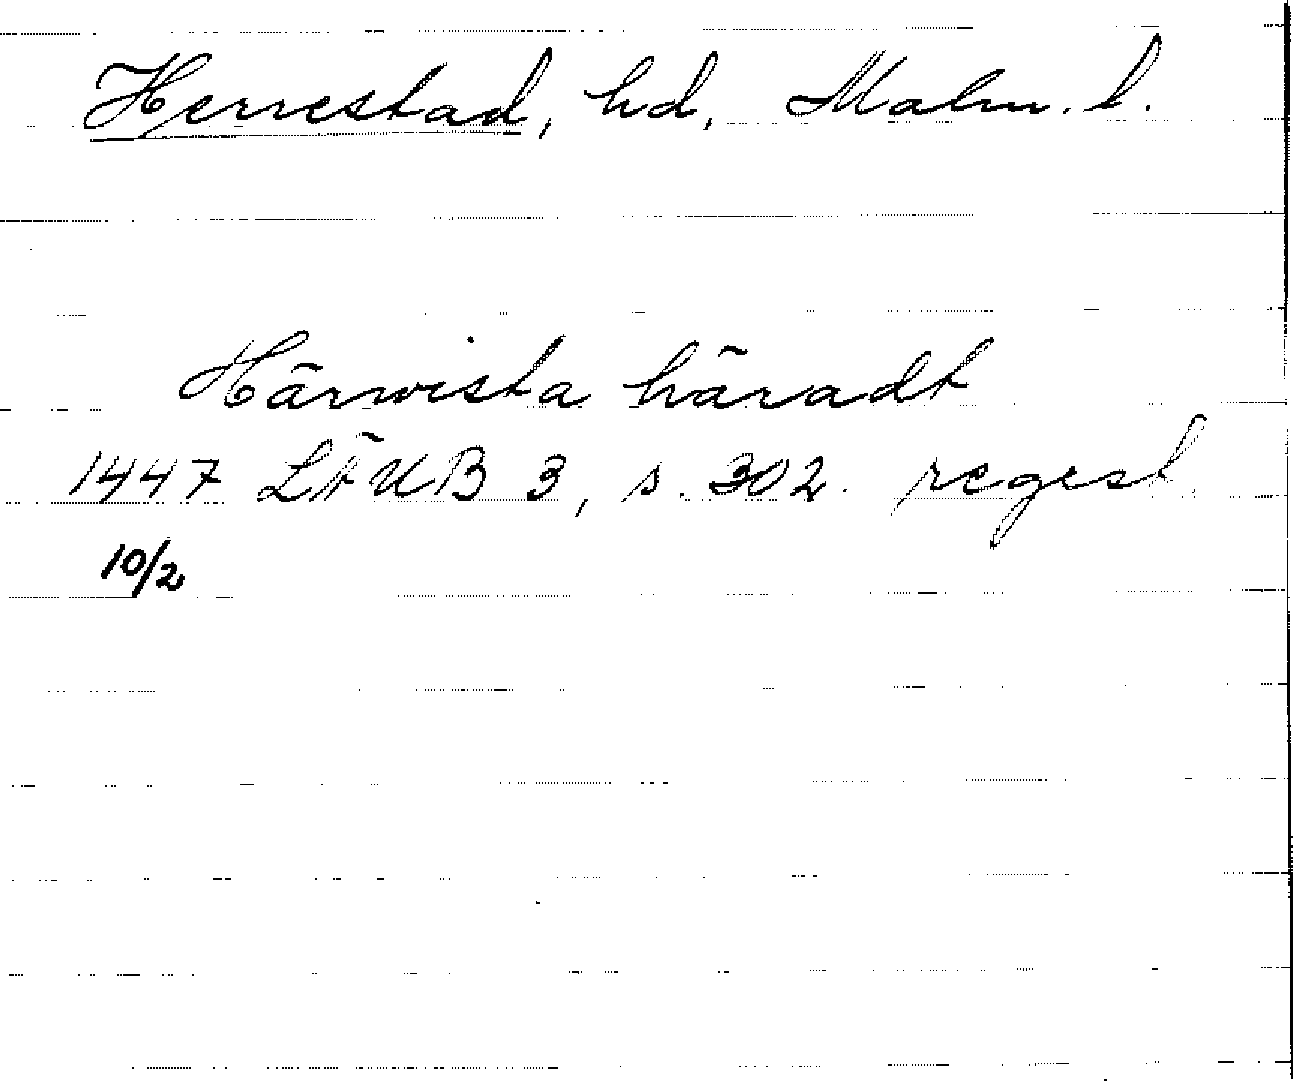 Herrestad, hd, Malm. l.
Härwista häradt
1447 LÄUB 3, s. 302. regest.
10/2